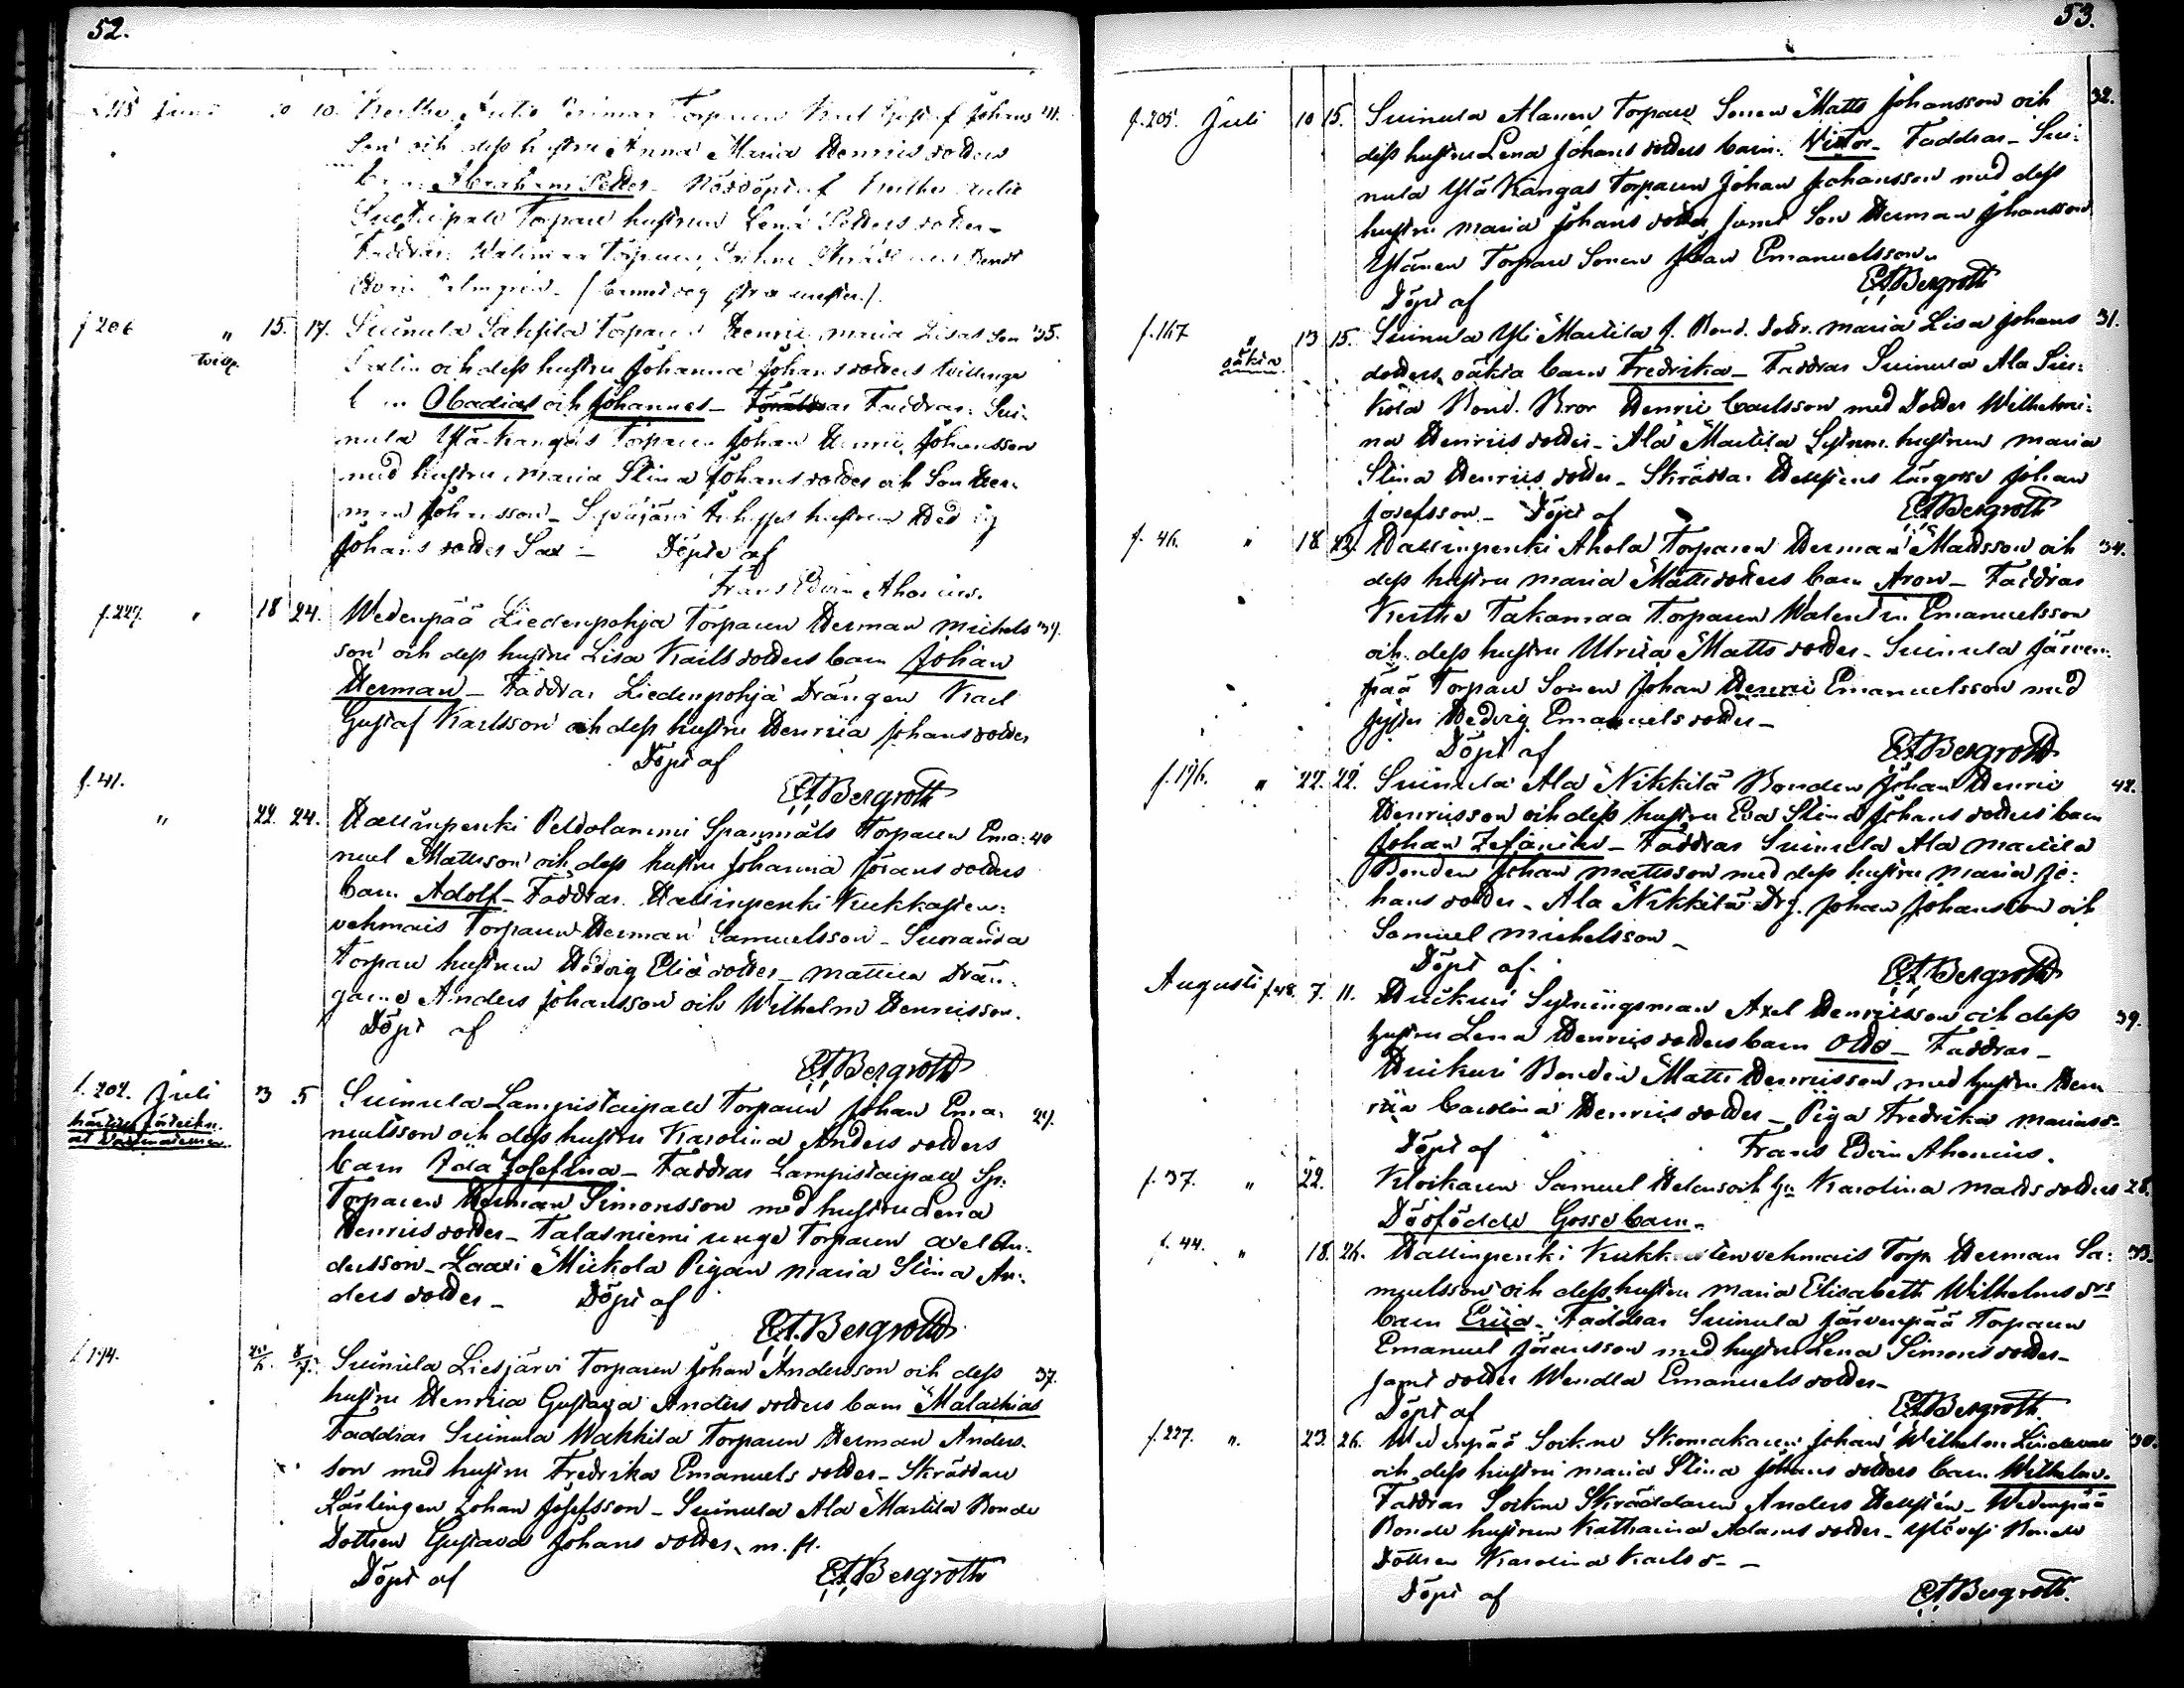 52.
Juni 10 10. Torparen Karl Gustaf Johans
son och dess hustru Anna Maria Henriks dotters
barn Abraham Petter - Nöddöpt af
Torpare hustrun Lena Petters dotter -
Faddrar Torparen
f 206 " 15. 17. Suinula Torparen Henric Maria Lisas Son 35.
tvill. och dess hustru Johanna Johans dotters tvillinge
Obadias och Johannes - Faddrar: Sui-
nula Ylä-Kangas Torparen Johan Henric Johansson
med hustru Maria Stina Johans dotter och Son Her-
man Johansson - hustrun Hedvig
Johans dotter Sax - Döpte af
Frans Edvin Ahonius.
f. 227. " 18 24. Wedenpää Liedenpohja Torparen Herman Michels
son och dess hustru Lisa Karls dotters barn Johan
Herman - Faddrar Liedenpohja Drängen Karl
Gustaf Karlsson och dess hustru Henrica Johans dotter
Döpt af
E A Bergroth
f. 41.
" 22. 24. Hallinpenki Peldolammi Spanmåls Torparen Ema- 40
nuel Mattsson och dess hustru Johanna Jörans dotters
barn Adolf - Faddrar. Hallinpenki Kukkasten-
vehmais Torparen Herman Samuelsson -
Torpare hustrun Hedvig Elias dotter - Mattila Drän-
garne Anders Johansson och Wilhelm Henricsson.
Döpt af
E A Bergroth
f. 202. Juli 3 5 Suinula Lampistaipale Torparen Johan Ema- 27.
nuelsson och dess hustru Karolina Anders dotters
barn Ida Josefina - Faddrar Lampistaipale Sp.
Torparen Herman Simonsson med hustru Lena
Henrics dotter - Talasniemi unge Torparen Axel An-
dersson - Laari Mickola Pigan Maria Stina An-
ders dotter - Döpt af
E A Bergroth
f 194. Suinula Liesjärvi Torparen Johan Andersson och dess 37.
hustru Henrica Gustava Anders dotters barn Malachias
Faddrar Suinula Wahkila Torparen Herman Anders-
son med hustru Fredrika Emanuels dotter - Skräddare
Lärlingen Johan Josefsson - Suinula Ala Martila Bonde
Dottren Gustava Johans dotter. m. fl.
Döpt af E A Bergroth
53.
f. 205. Juli 10 15. Suinula Alanen Torpare Sonen Matts Johansson och 32.
dess hustru Lena Johans dotters barn. Victor - Faddrar - Sui-
nula Ylä Kangas Torparen Johan Johansson med dess
hustru Maria Johans dotter samt Son Herman Johansson
Ylänen Torpare Sonen Johan Emanuelsson.
Döpt af E A Bergroth
f. 167 " 13 15. Suinula Yli Martila f. Bond. dotr. Maria Lisa Johans 31.
oäkta dotters oäkta barn Fredrika - Faddrar Suinula Ala Sir-
kola Bond. Bror Henric Carlsson med Dotter Wilhelmi-
na Henrics dotter - Ala Martila Sytnm. hustrun Maria
Stina Henrics dotter - Skräddar Hellstens lärgosse Johan
Josefsson - Döpt af E A Bergroth
f. 46. " 18 22. Hallinpenki Ahola Torparen Herman Mattsson och 34.
dess hustru Maria Matts dotters barn Aron - Faddrar
Kurthe Takamaa Torparen Walentin Emanuelsson
och dess hustru Ulrica Matts dotter - Suinula Järven-
pää Torpare Sonen Johan Henric Emanuelsson med
syster Hedvig Emanuels dotter -
Döpt af E A Bergroth
f. 176. " 22. 22. Suinula Ala Nikkilä Bonden Johan Henric 42.
Henricsson och dess hustru Eva Stina Johans dotters barn
Johan Zefanias - Faddrar Suinula Ala Martila
Bonden Johan Mattsson med dess hustru Maria Jo-
hans dotter - Ala Nikkilä Drg. Johan Johansson och
Samuel Michelsson -
Döpt af. E A Bergroth
Augusti f. 48. 7. 11. Huikuri Sytningsman Axel Henricsson och dess 39.
hustru Lena Henrics dotters barn Otto - Faddrar -
Huikuri Bonden Matts Henricsson med hustru Hen
rica Carolina Henrics dotter - Piga Fredrika Mariasd.
Döpt af Frans Edvin Ahonius.
f. 37. " 22. Klockaren Samuel Helens och hu Karolina Matts dotters 28.
Dödfödde Gosse barn.
f. 44. " 18. 26. Hallinpenki Kukkastenvehmais Torp. Herman Sa- 33.
muelsson och dess hustru Maria Elisabeth Wilhelms drs
barn Erica - Faddrar Suinula Järvenpää Torparen
Emanuel Jöransson med hustru Lena Simons dotter -
samt dotter Wendla Emanuels dotter -
Döpt af E A Bergroth.
f. 227. ". 23. 26. Wedenpää Soikne Skomakaren Johan Wilhelm 30.
och dess hustru Maria Stina Johans dotters barn Wilhelm.
Faddrar Soikne Skräddaren Anders Hellstén - Wedenpää
Bonde hustrun Katharina Adams dotter - Bonde
Dottren Karolina Karls d. -
Döpt af E A Bergroth.